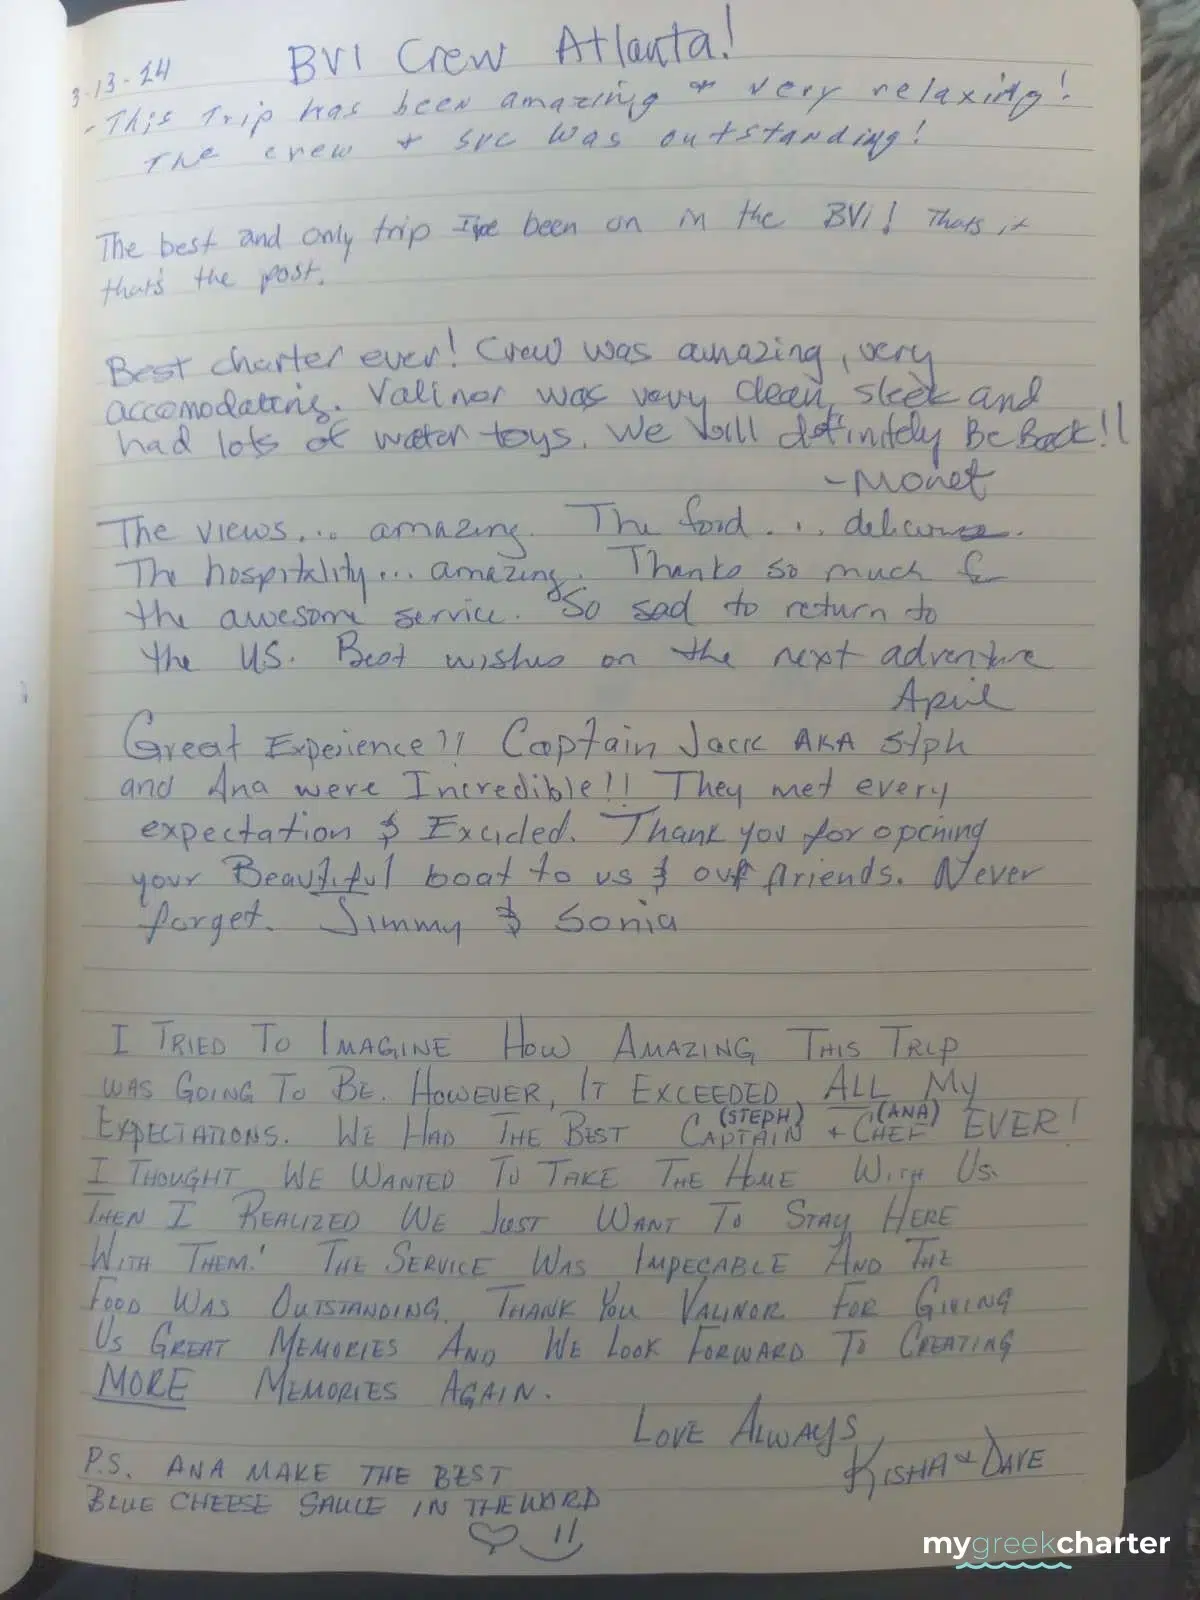 BVI Crew Atlanta!
3-13-24
- This Trip has been amazing & very relaxing!
The crew + svc was outstanding!
The best and only trip I've been on in the BVI! Thats it
that's the post.
Best charter ever! Crew was amazing, very
accomodating. Valinor was very clean, sleek and
had lots of water toys. We will definitely Be Back!!
- Monet
The views... amazing. The food... delicious.
The hospitality... amazing. Thanks so much for
the awesome service. So sad to return to
the US. Best wishes on the next adventure
April
Great Experience!! Captain Jack AKA Stph
and Ana were Incredible!! They met every
expectation & Excided. Thank you for opening
your Beautiful boat to us & our friends. Never
forget. Jimmy & Sonia
I Tried To Imagine How Amazing This Trip
was Going To Be. However, It Exceeded ALL My
(STEPH) (ANA)
Expectations. We Had The Best Captain + Chef EVER!
I Thought We Wanted To Take The Home With Us.
Then I Realized We Just Want To Stay Here
With Them! The Service Was Impecable And The
Food Was Outstanding. Thank You Valinor For Giving
Us Great Memories And We Look Forward To Creating
MORE Memories Again.
Love Always,
Kisha & Dave
P.S. ANA MAKE THE BEST
BLUE CHEESE SAUCE IN THE WORD
mygreekcharter